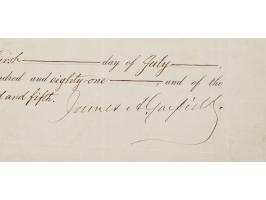 first day of July
ndred and eighty-one, and of the
d and fifth.
James A. Garfield.